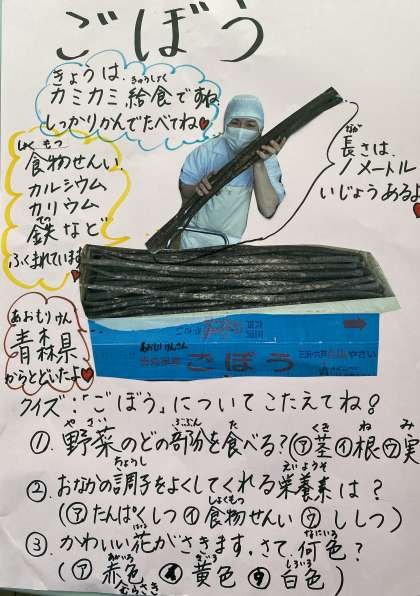 ごぼう
きょうは、きゅうしょく
カミカミ給食ですね
しっかりかんでたべてね
しょくもつ
食物せんい、
カルシウム
カリウム
てつ
鉄など
ふくまれています
なが
長さは、
1メートル
いじょうあるよ
あおもりけんさん
ごぼう
やさい
あおもりけん
青森県
からとどいたよ
クイズ:「ごぼう」についてこたえてね!
やさい ぶぶん た くき ね み
①. 野菜のどの部分を食べる?(㋐茎㋑根㋒実
ちょうし えいようそ
②. おなかの調子をよくしてくれる栄養素は?
しょくもつ
(㋐たんぱくしつ ㋑食物せんい ㋒ししつ)
はな なにいろ
③. かわいい花がさきます。さて、何色?
きいろ しろいろ
(㋐赤色 ㋑黄色 ㋒白色)
むらさき